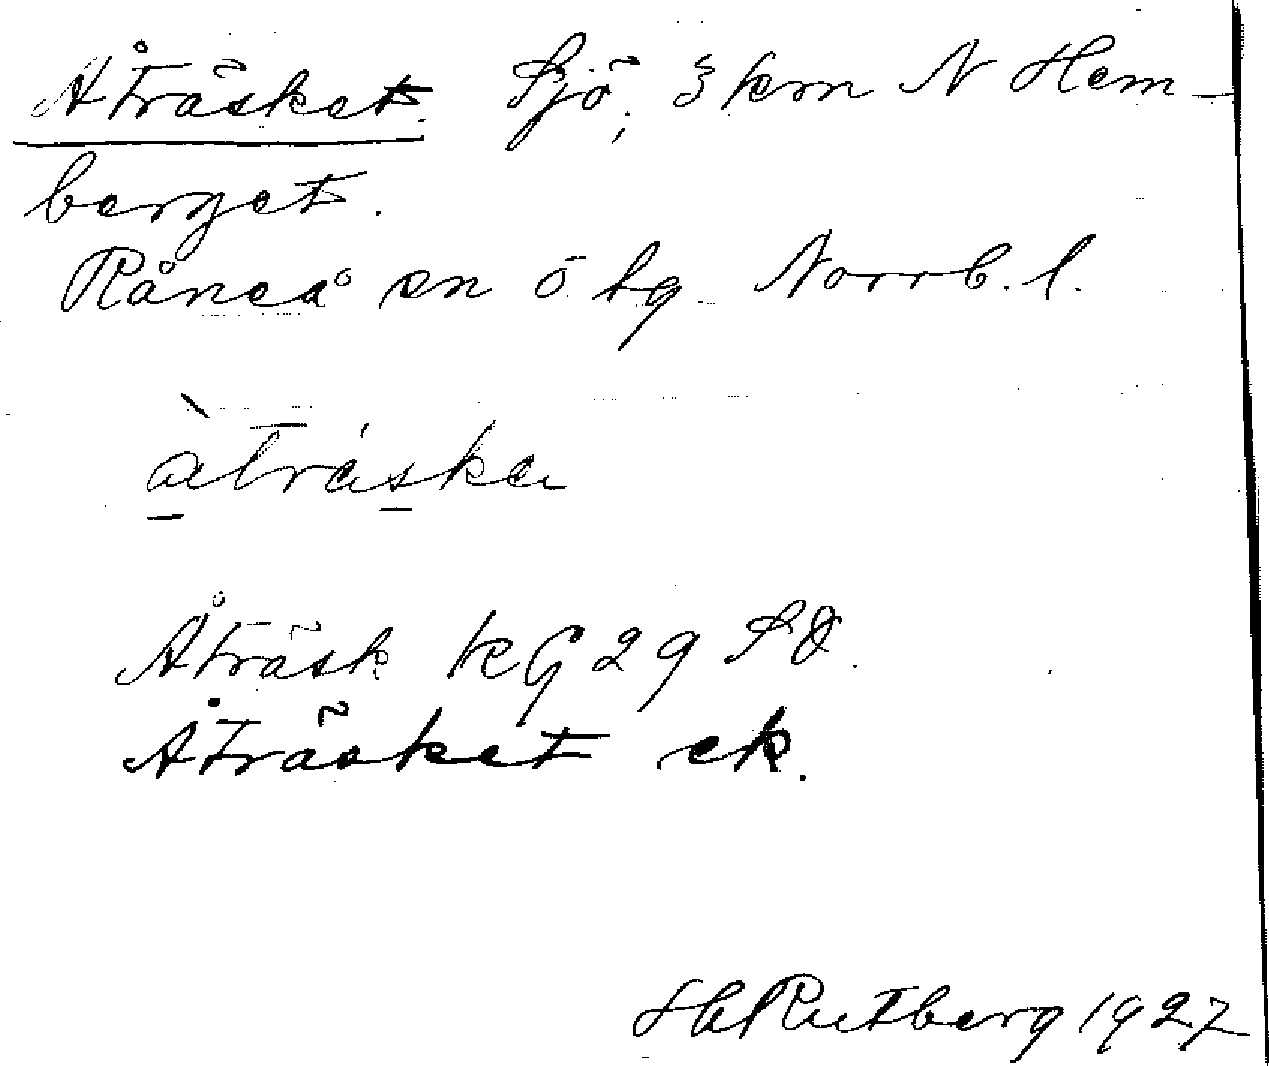 Åträsket. Sjö, 3 km N Hem-
berget.
Råneå sn Ö lg. Norrb. l.
àtráska
Åträsk KG 29 SO.
Åträsket ek.
Hl Rutberg 1927